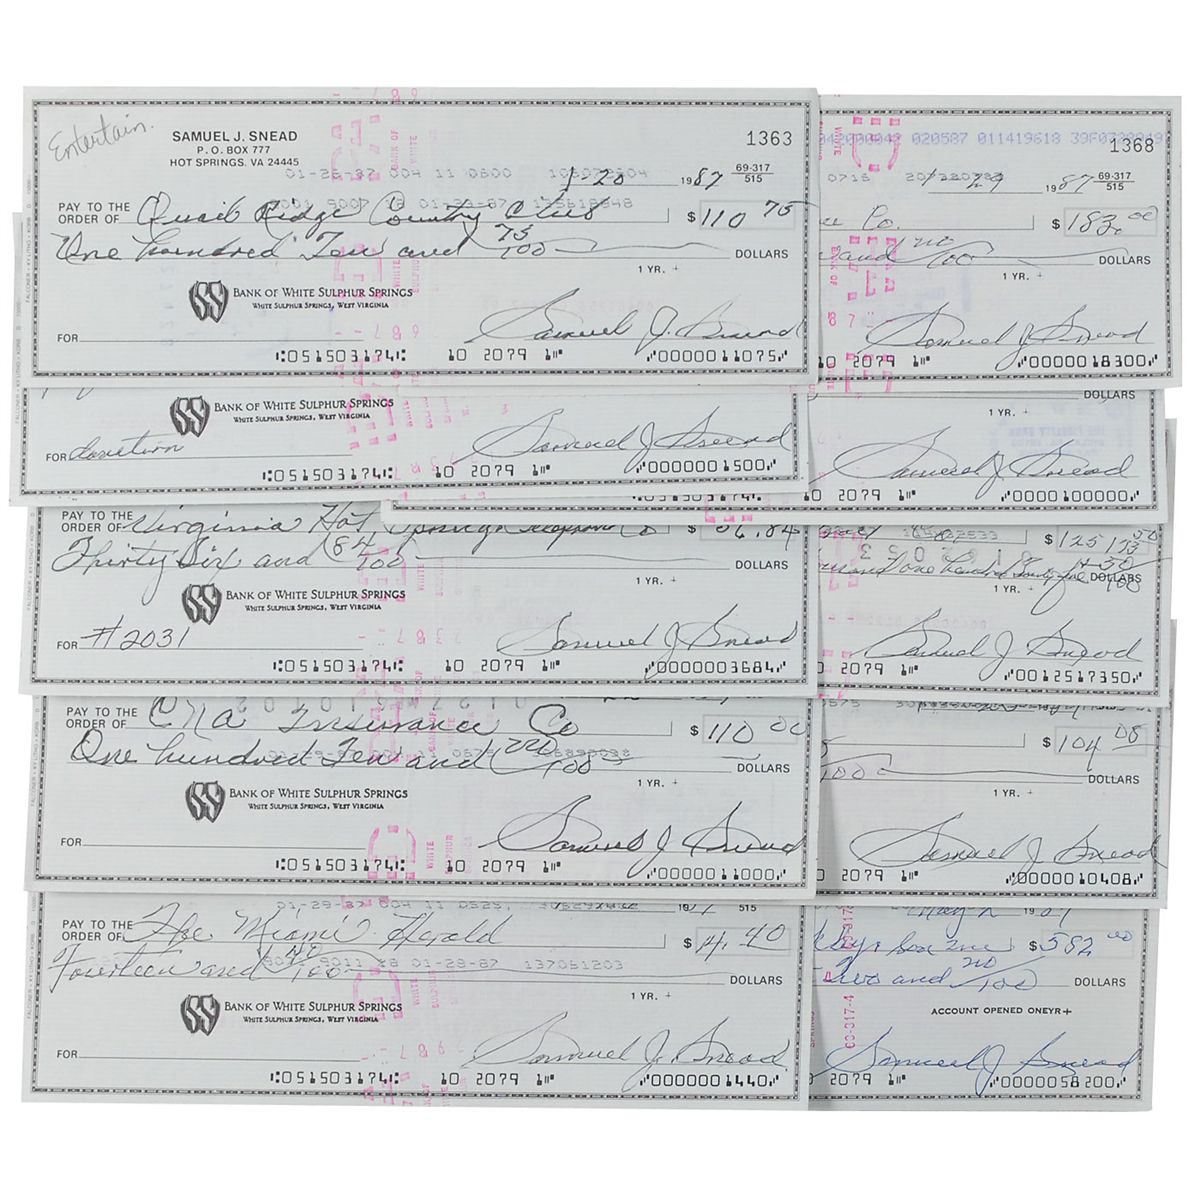 Entertain.
SAMUEL J. SNEAD
P. O. BOX 777
HOT SPRINGS, VA 24445
1363
01-26-87 004 11 0600
1-20 1987 69-317
515
PAY TO THE
ORDER OF Quail Ridge Country Club $ 110 75
One hundred Ten and 75/100 DOLLARS
1 YR. +
BANK OF WHITE SULPHUR SPRINGS
WHITE SULPHUR SPRINGS, WEST VIRGINIA
FOR
Samuel J. Snead
⑆051503174⑆ 10 2079 1⑈ ⑈0000011075⑈
020587 011419618
1368
1987 69-317
515
Co. $ 183.00
and no/100 DOLLARS
1 YR. +
Samuel J Snead
10 2079 1⑈ ⑈0000018300⑈
BANK OF WHITE SULPHUR SPRINGS
WHITE SULPHUR SPRINGS, WEST VIRGINIA
FOR donation
Samuel J Snead
⑆051503174⑆ 10 2079 1⑈ ⑈0000001500⑈
DOLLARS
1 YR. +
Samuel J. Snead
10 2079 1⑈ ⑈0000100000⑈
PAY TO THE
ORDER OF Virginia Hot Springs Telephone Co $ 36.84
Thirty Six and 84/100 DOLLARS
1 YR. +
BANK OF WHITE SULPHUR SPRINGS
WHITE SULPHUR SPRINGS, WEST VIRGINIA
FOR #2031
Samuel J Snead
⑆051503174⑆ 10 2079 1⑈ ⑈0000003684⑈
$ 125173 50
One hundred seventy three 50/100 DOLLARS
1 YR. +
Samuel J Snead
2079 1⑈ ⑈0012517350⑈
PAY TO THE
ORDER OF CNA Insurance Co $ 110 00
One hundred Ten and no/100 DOLLARS
1 YR. +
BANK OF WHITE SULPHUR SPRINGS
WHITE SULPHUR SPRINGS, WEST VIRGINIA
FOR
Samuel J Snead
⑆051503174⑆ 10 2079 1⑈ ⑈0000011000⑈
$ 104 08
100 DOLLARS
1 YR. +
Samuel J Snead
2079 1⑈ ⑈0000010408⑈
01-29-87 004 11 0525
515
PAY TO THE
ORDER OF The Miami Herald $ 14.40
Fourteen and 40/100 DOLLARS
9011 01-29-87 137061203
1 YR. +
BANK OF WHITE SULPHUR SPRINGS
WHITE SULPHUR SPRINGS, WEST VIRGINIA
FOR
Samuel J. Snead
⑆051503174⑆ 10 2079 1⑈ ⑈0000001440⑈
May 2 19
$ 582 00
Two and no/100 DOLLARS
ACCOUNT OPENED ONEYR+
Samuel J Snead
2079 1⑈ ⑈0000058200⑈